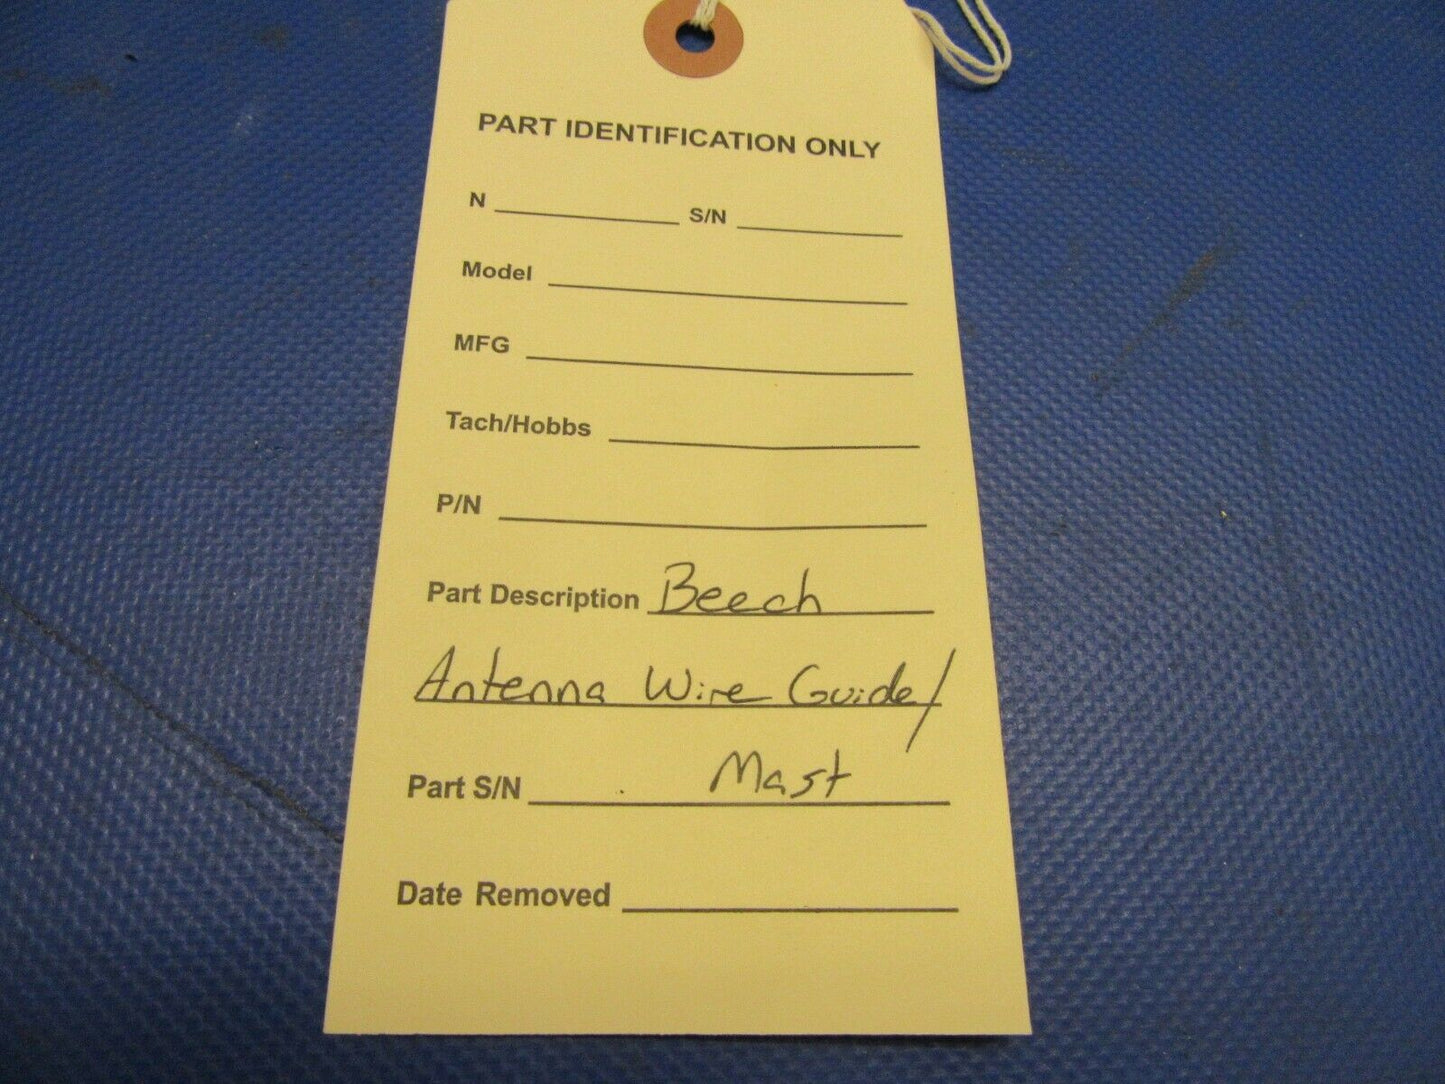 PART IDENTIFICATION ONLY
N S/N
Model
MFG
Tach/Hobbs
P/N
Part Description Beech
Antenna Wire Guide/
Part S/N Mast
Date Removed